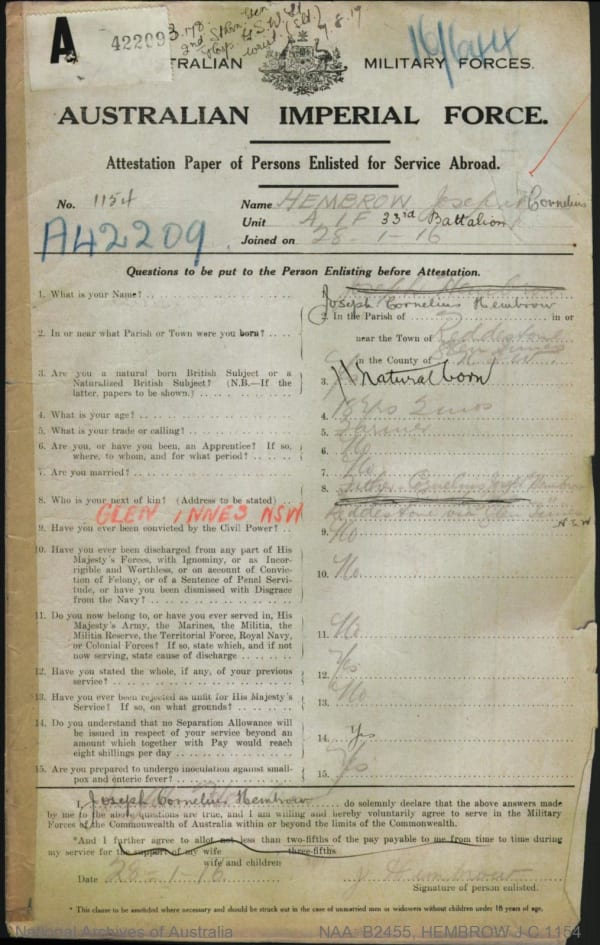 A
42209
3.178
2nd
9.8.19
16/644
AUSTRALIAN MILITARY FORCES.
AUSTRALIAN IMPERIAL FORCE.
Attestation Paper of Persons Enlisted for Service Abroad.
No. 1154
Name HEMBROW Joseph Cornelius
Unit A.I.F 33rd Battalion
Joined on 28-1-16
A42209
Questions to be put to the Person Enlisting before Attestation.
1. What is your Name?
Joseph Hembrow
Joseph Cornelius Hembrow
2. In or near what Parish or Town were you born?
2. In the Parish of in or
near the Town of Reddestone
Glen Innes
in the County of N.S.W.
3. Are you a natural born British Subject or a
Naturalized British Subject? (N.B.—If the
latter, papers to be shown.)
3. Natural born
4. What is your age?
4. 18 yrs 2 mos
5. What is your trade or calling?
5. Farmer
6. Are you, or have you been, an Apprentice? If so,
where, to whom, and for what period?
6. No
7. Are you married?
7. No
8. Who is your next of kin? (Address to be stated)
8. Father Cornelius Hembrow
Reddestone via Glen Innes
N.S.W
GLEN INNES NSW
9. Have you ever been convicted by the Civil Power?
9. No
10. Have you ever been discharged from any part of His
Majesty's Forces, with Ignominy, or as Incor-
rigible and Worthless, or on account of Convic-
tion of Felony, or of a Sentence of Penal Servi-
tude, or have you been dismissed with Disgrace
from the Navy?
10. No
11. Do you now belong to, or have you ever served in, His
Majesty's Army, the Marines, the Militia, the
Militia Reserve, the Territorial Force, Royal Navy,
or Colonial Forces? If so, state which, and if not
now serving, state cause of discharge
11. No
12. Have you stated the whole, if any, of your previous
service?
12. Yes
13. Have you ever been rejected as unfit for His Majesty's
Service? If so, on what grounds?
13. No
14. Do you understand that no Separation Allowance will
be issued in respect of your service beyond an
amount which together with Pay would reach
eight shillings per day
14. Yes
15. Are you prepared to undergo inoculation against small-
pox and enteric fever?
15. Yes
I, Joseph Cornelius Hembrow do solemnly declare that the above answers made
by me to the above questions are true, and I am willing and hereby voluntarily agree to serve in the Military
Forces of the Commonwealth of Australia within or beyond the limits of the Commonwealth.
*And I further agree to allot not less than two-fifths of the pay payable to me from time to time during
three-fifths
my service for the support of my wife
wife and children
Date 28-1-16
J Hembrow
Signature of person enlisted.
* This clause to be amended where necessary and should be struck out in the case of unmarried men or widowers without children under 18 years of age.
National Archives of Australia
NAA: B2455, HEMBROW J C 1154